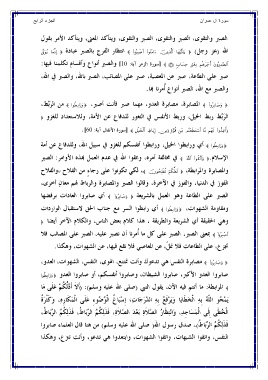 سورة آل عمران
الجزء الرابع
الصبر والتقوى، الصبر والتقوى، الصبر والتقوى، ويتأكد المعنى، ويتأكد الأمر بقول
الله (عز وجل): ﴿يَا أَيُّهَا الَّذِينَ ءَامَنُوا اصْبِرُوا﴾ انتظار الفرج بالصبر عبادة ﴿إِنَّمَا يُوَفَّى
الصَّابِرُونَ أَجْرَهُم بِغَيْرِ حِسَابٍ﴾ [سورة الزمر آية: 10] والصبر أنواع وأقسام تكلمنا فيها:
صبر على الطاعة، صبر عن المعصية، صبر على المصائب، الصبر بالله، والصبر في الله،
والصبر مع الله، الصبر أنواع أُمرنا بها.
﴿وَصَابِرُوا﴾ المصابرة: مصابرة العدو، مهما صبر فأنت أصبر. ﴿وَرَابِطُوا﴾ من الرَّبْط،
الرَّبْط ربط الخيل، وربط الأنفس في الثغور للدفاع عن الأمة، وللاستعداد للغزو
﴿وَأَعِدُّوا لَهُم مَّا اسْتَطَعْتُم مِّن قُوَّةٍ وَمِن رِّبَاطِ الْخَيْلِ﴾ [سورة الأنفال آية: 60].
﴿وَرَابِطُوا﴾ أي ورابطوا الخيل، ورابطوا أنفسكم للغزو في سبيل الله، وللدفاع عن أمة
الإسلام ﴿وَاتَّقُوا اللَّهَ﴾ في مخالفة أمره، وتقوا الله في عدم العمل بهذه الأوامر: الصبر
والمصابرة والمرابطة، ﴿لَعَلَّكُمْ تُفْلِحُونَ﴾ لكي تكونوا على رجاء من الفلاح -والفلاح
الفوز في الدنيا، والفوز في الآخرة. وقالوا الصبر والمصابرة والرباط لهم معان أخرى،
الصبر على الطاعة وهو العمل بالشريعة ﴿وَصَابِرُوا﴾ أي صابروا العادات برفضها
ومقاومة الشهوات. ﴿وَرَابِطُوا﴾ أي رابطوا السر مع جناب الحق لاستقبال الواردات
وهي الحقيقة أي الشريعة والطريقة. هذا كلام بعض الناس، والكلام الآخر أيضًا ﴿
اصْبِرُوا﴾ بمعنى الصبر، الصبر على كل ما أُمرنا أن نصبر عليه. الصبر على المصائب فلا
تجزع، على الطاعات فلا تمل، عن المعاصي فلا تقع فيها، عن الشهوات، وهكذا.
﴿وَصَابِرُوا﴾ مصابرة النفس هي تدعوك وأنت تمتنع، الهوى، النفس، الشهوات، العدو.
صابروا العدو الأكبر، صابروا الشيطان، وصابروا أنفسكم، أو صابروا العدو ﴿وَرَابِطُوا
﴾ المرابطة: ما أنتم فيه الآن، يقول النبي (صلى الله عليه وسلم): (أَلَا أَدُلُّكُمْ عَلَى مَا
يَمْحُو اللَّهُ بِهِ الْخَطَايَا وَيَرْفَعُ بِهِ الدَّرَجَاتِ: إِسْبَاغُ الْوُضُوءِ عَلَى الْمَكَارِهِ، وَكَثْرَةُ
الْخُطَى إِلَى الْمَسَاجِدِ، وَانْتِظَارُ الصَّلَاةِ بَعْدَ الصَّلَاةِ، فَذَلِكُمُ الرِّبَاطُ، فَذَلِكُمُ الرِّبَاطُ،
فَذَلِكُمُ الرِّبَاطُ). صدق رسول الله (صلى الله عليه وسلم) من هنا قال العلماء صابروا
النفس، واتقوا الشبهات، واتقوا الشهوات، وابتعدوا هي تدعو، وأنت تزع، وهكذا